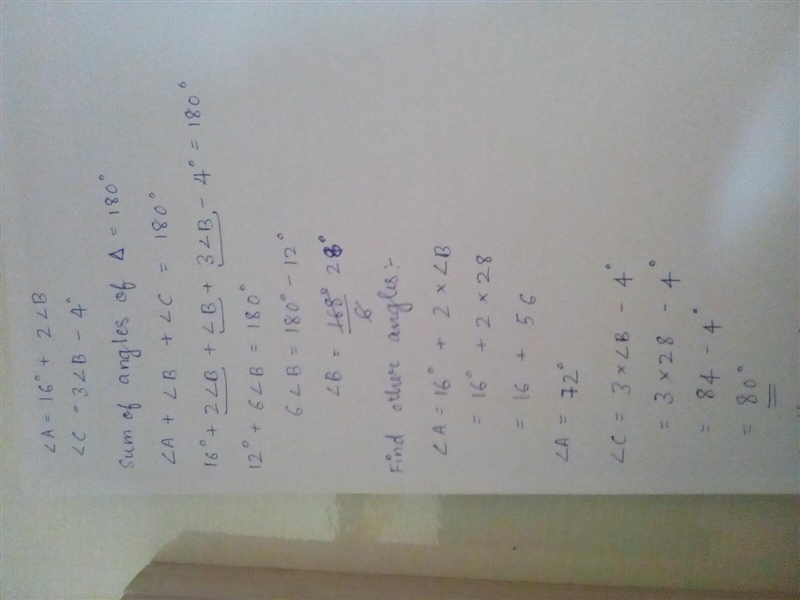 ∠A = 16° + 2∠B
∠C = 3∠B - 4°
Sum of angles of Δ = 180°
∠A + ∠B + ∠C = 180°
16° + 2∠B + ∠B + 3∠B - 4° = 180°
12° + 6∠B = 180°
6∠B = 180° - 12°
∠B = 168° 28°
6
Find other angles:-
∠A = 16° + 2 × ∠B
= 16° + 2 × 28
= 16 + 56
∠A = 72°
∠C = 3 × ∠B - 4°
= 3 × 28 - 4°
= 84 - 4°
= 80°